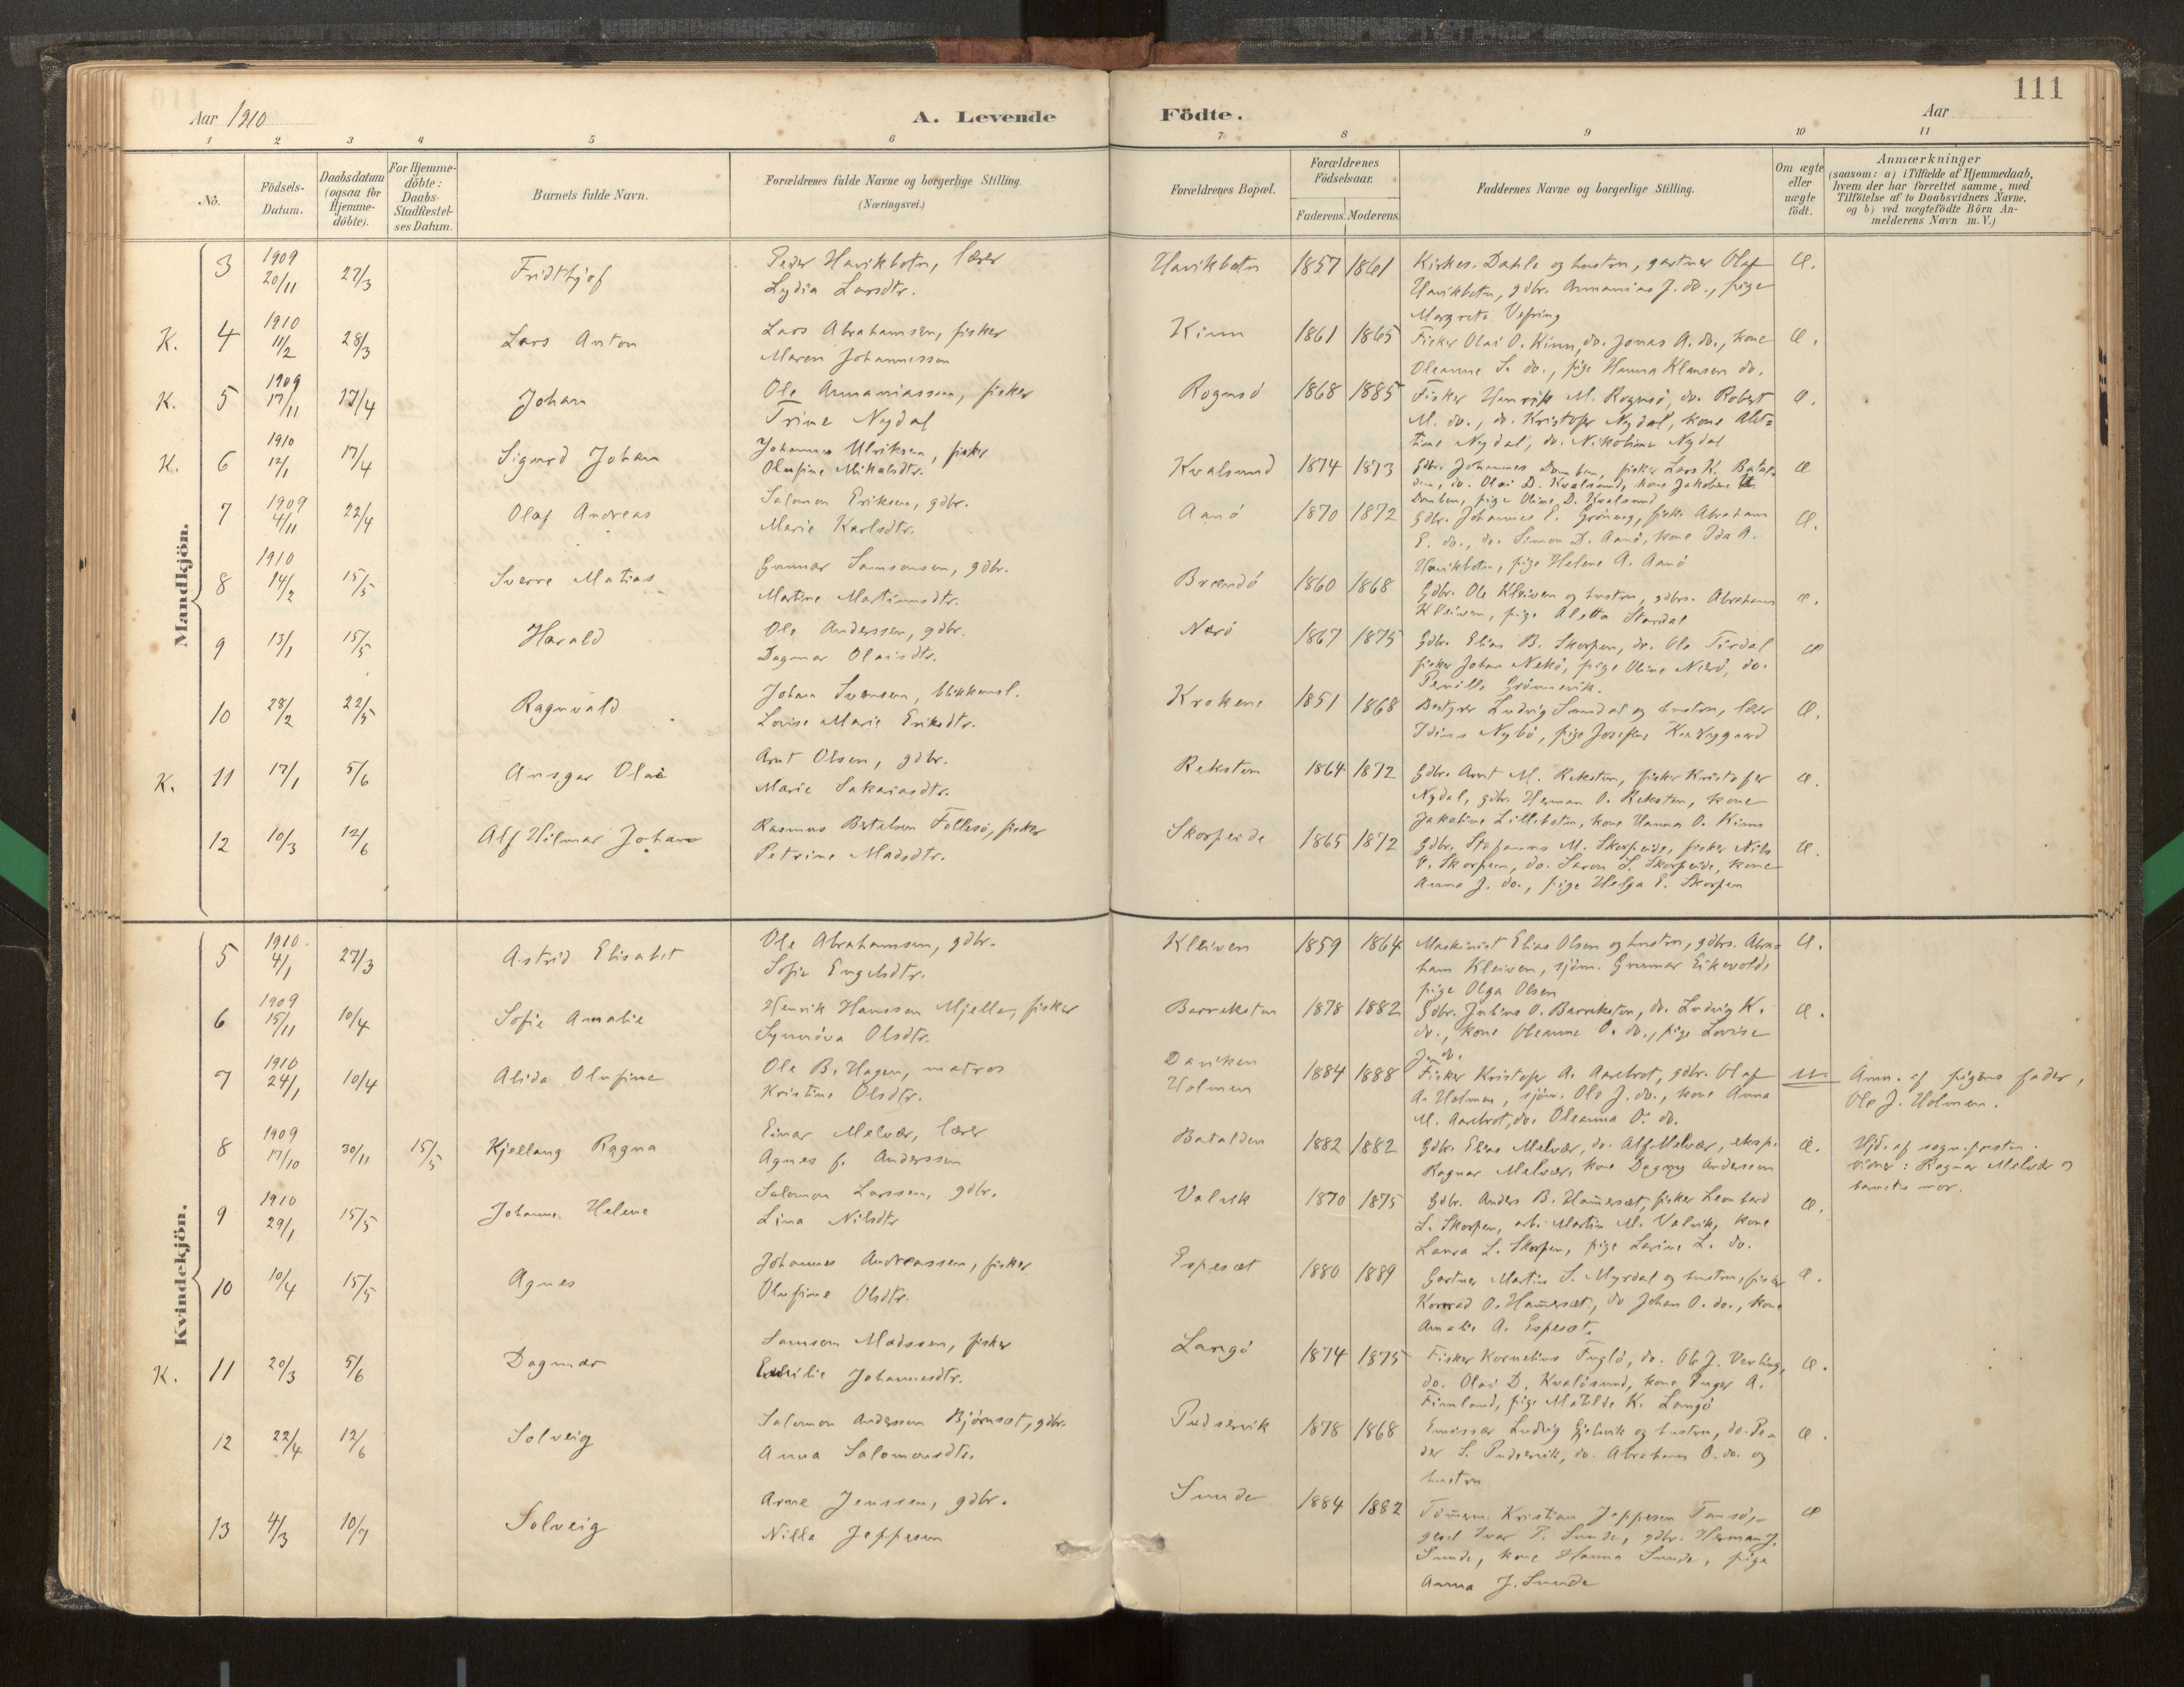 111
Aar 1910
A. Levende Födte.
Aar
1 2 3 4 5 6 7 8 9 10 11
No.
Födsels-
Datum.
Daabsdatum
(ogsaa for
Hjemme-
döbte).
For Hjemme-
döbte:
Daabs-
Stadfæstel-
ses Datum.
Barnets fulde Navn.
Forældrenes fulde Navne og borgerlige Stilling.
(Næringsvei.)
Forældrenes Bopæl.
Forældrenes
Födselsaar.
Faderens. Moderens.
Faddernes Navne og borgerlige Stilling.
Om ægte
eller
uægte
födt.
Anmærkninger
(saasom: a) i Tilfælde af Hjemmedaab,
hvem der har forrettet samme, med
Tilföielse af to Daabsvidners Navne.
og b) ved uægtefödte Börn An-
melderens Navn m. V.)
Mandkjön.
3 1909 20/11 27/3 Fridthjof
Peder Havikbotn, lærer
Lydia Larsdtr.
Havikbotn 1857 1861
Kirkes. Dahle og hustru, gartner Olaf
Havikbotn, gdbr. Annanias J. do., pige
Margrete Vefring
Æ.
K. 4 1910 11/2 28/3 Lars Anton
Lars Abrahamsen, fisker
Maren Johannessen
Kinn 1861 1865
Fisker Olai O. Kinn, do. Jonas A. do., kone
Oleanne S. do., pige Hanna Klausen do.
Æ.
K. 5 1909 17/11 17/4 Johan
Ole Annaniassen, fisker
Trine Nydal
Rognsö 1868 1885
Fisker Henrik M. Rognsö, do. Robert
M. do., do. Kristofer Nydal, kone Alet=
tine Nydal, do. Nikoline Nydal
Æ.
K. 6 1910 12/1 17/4 Sigurd Johan
Johannes Ulriksen, fisker
Olufine Mikalsdtr.
Kvalsund 1874 1873
Gdbr. Johannes Domben, fisker Lars K. Batal-
den, do. Olai D. Kvalsund, kone Jakobine
Domben, pige Oline D. Kvalsund
Æ
7 1909 4/11 22/4 Olaf Andreas
Salomon Eriksen, gdbr.
Marie Karlsdtr.
Aanö 1870 1872
Gdbr. Johannes E. Grönevg, fisker Abraham
E. do., do. Simon D. Aanö, kone Ida A.
Havikbotn, pige Helene A. Aanö
Æ.
8 1910 14/2 15/5 Sverre Matias
Gunnar Samsonsen, gdbr.
Martine Martinusdtr.
Brandö 1860 1868
Gdbr. Ole Kleiven og hustru, gdbrs. Abraham
Kleiven, pige Aletta Standal
Æ.
9 13/1 15/5 Harald
Ole Anderssen, gdbr.
Dagmar Olaisdtr.
Nærö 1867 1875
Gdbr. Elias B. Skorpen, do. Ole Tirdal
fisker Johan Nekö, pige Oline Nærö, do.
Pernille Grönnevik.
Æ
10 28/2 22/5 Ragnvald
Johan Svensen, blikkensl.
Lovise Marie Eriksdtr.
Krokene 1851 1868
Bestyrer Ludvig Sunndal og hustru, lærer
Idinus Nybö, pige Josefine K. Nyggaard
Æ.
K. 11 17/1 5/6 Ansgar Olai
Arnt Olsen, gdbr.
Marie Sakariasdtr.
Reksten 1864 1872
Gdbr. Arnt M. Reksten, fisker Kristofer
Nydal, gdbr. Herman O. Reksten, kone
Jakobine Lillebotn, kone Hanna O. Kinn
Æ.
12 10/3 12/6 Alf Hilmar Johan
Rasmus Bertelsen Follesö, fisker
Petrine Madsdtr.
Skorpeide 1865 1872
Gdbr. Stefanus M. Skorpeide, fisker Nils
O. Skorpen, do. Saron S. Skorpeide, kone
Anna J. do., pige Helga E. Skorpen
Æ.
Kvindekjön.
5 1910 4/1 27/3 Astrid Elisabet
Ole Abrahamsen, gdbr.
Sofie Engelsdtr.
Kleiven 1859 1864
Maskinist Elias Olsen og hustru, gdbrs. Abra=
ham Kleiven, sjöm. Gunnar Eikevold,
pige Olga Olsen
Æ.
6 1909 15/11 10/4 Sofie Amalie
Henrik Hanssen Mjelle, fisker
Synnöva Olsdtr.
Barreksten 1878 1882
Gdbr. Julius O. Barreksten, do. Ludvig K.
do., kone Oleanne O. do., pige Lovise
J. do.
Æ.
7 1910 24/1 10/4 Alida Olufine
Ole B. Hagen, matros
Kristine Olsdtr.
Daviken
Holmen
1884 1888
Fisker Kristofer A. Aarebrot, gdbr. Olaf
A. Holmen, sjöm. Ole J. do., kone Anna
M. Aarebrot, do. Oleanna O. do.
U.
Anm. af pigens fader,
Ole J. Holmen.
8 1909 17/10 30/11 15/5 Kjellaug Ragna
Einar Melvær, lærer
Agnes f. Anderssen
Batalden 1882 1882
Gdbr. Elias Melvær, do. Alf Melvær, eksp.
Ragnar Melvær, kone Dagny Anderssen
Æ.
Hjd. af sogn.presten.
vidner: Ragnar Melvær og
barnets mor.
9 1910 29/1 15/5 Johanne Helene
Salomon Larssen, gdbr.
Lina Nilsdtr
Valvik 1870 1875
Gdbr. Anders B. Hammersæt, fisker Leonhard
L. Skorpen, arb. Martin M. Valvik, kone
Laura L. Skorpen, pige Larine L. do.
Æ.
10 10/4 15/5 Agnes
Johannes Andreassen, fisker
Olufine Olsdtr.
Espesæt 1880 1889
Gartner Martin S. Myrdal og hustru, fisker
Konrad O. Hammersæt, do Johan O. do., kone
Amalie A. Espesæt.
Æ.
K. 11 20/3 5/6 Dagmar
Samson Madssen, fisker
Emilie Johannesdtr.
Langö 1874 1875
Fisker Kornelius Fuglö, do. Ole J. Vevling,
do. Olai D. Kvalösund, kone Inger A.
Finnland, pige Matilde K. Langö
Æ.
12 22/4 12/6 Solveig
Salomon Anderssen Björnset, gdbr.
Anna Salomonsdtr.
Pudservik 1878 1868
Emissær Ludvig Gjelsvik og hustru, do. Pe=
der S. Pudservik, do. Abraham O. do. og
hustru
Æ.
13 4/3 10/7 Solveig
Arne Jenssen, gdbr.
Nille Jeppesen
Sunde 1884 1882
Tömmerm. Kristian Jeppesen Tansö,
gaard Ivar T. Sunde, gdbr. Herman J.
Sunde, kone Hanna Sunde, pige
Anna J. Sunde
Æ